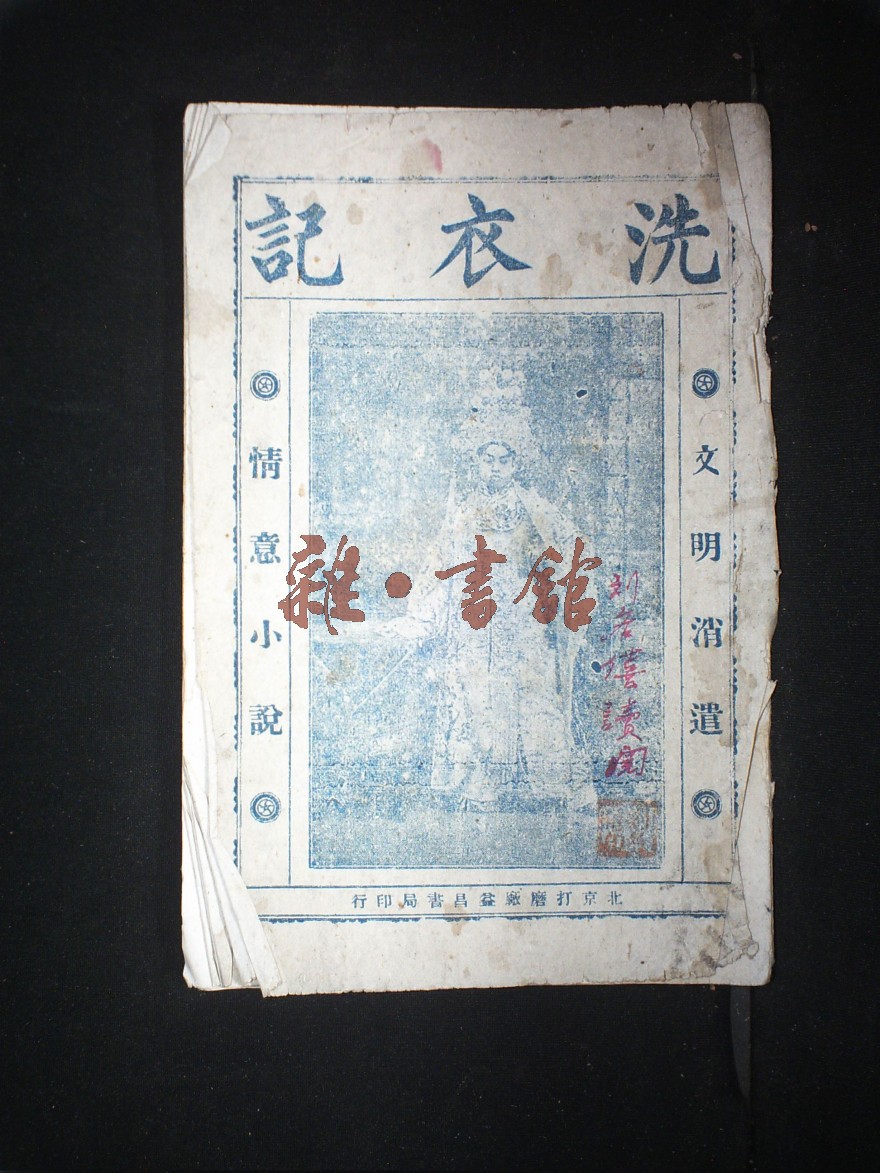 洗衣記
文明消遣
情意小說
雜·書館
讀閱
北京打磨廠益昌書局印行